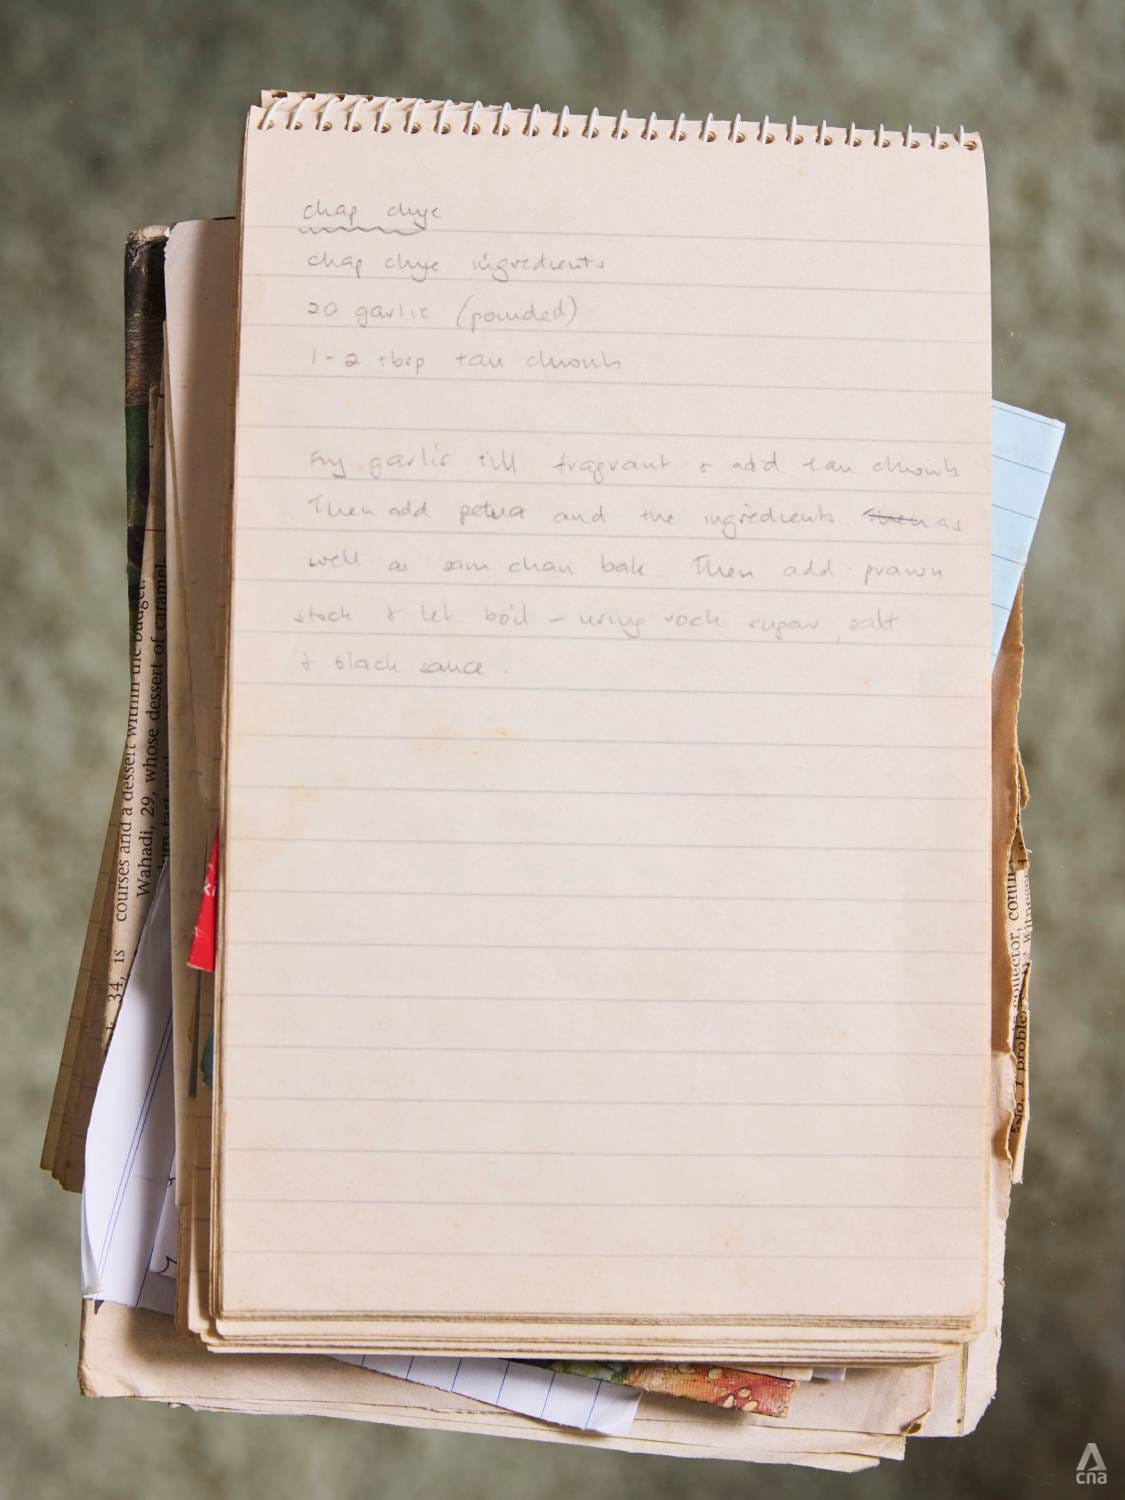 chap chye
chap chye ingredients
20 garlic (pounded)
1-2 tbsp tau cheouh
Fry garlic till fragrant & add tau cheouh
Then add petua and the ingredients then as
well as sam chan bak. Then add prawn
stock & let boil - using rock sugar, salt
& black sauce.
courses and a dessert within the budget.
Wahadi, 29, whose dessert of caramel
34, is
collector,
No. 1 proble
cna